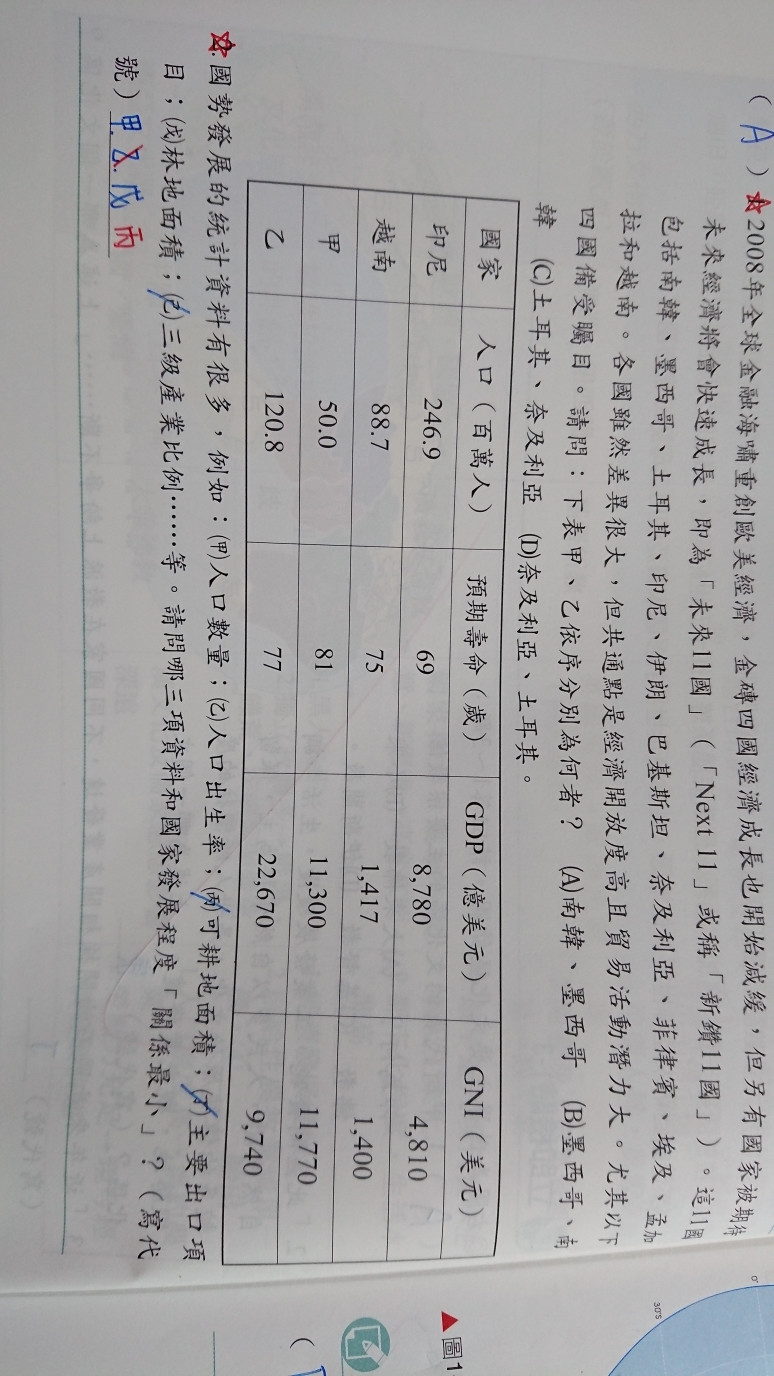 ( A ) 2008年全球金融海嘯重創歐美經濟，金磚四國經濟成長也開始減緩，但另有國家被期待
未來經濟將會快速成長，即為「未來11國」（「Next 11」或稱「新鑽11國」）。這11國
包括南韓、墨西哥、土耳其、印尼、伊朗、巴基斯坦、奈及利亞、菲律賓、埃及、孟加
拉和越南。各國雖然差異很大，但共通點是經濟開放度高且貿易活動潛力大。尤其以下
四國備受矚目。請問：下表甲、乙依序分別為何者？ (A)南韓、墨西哥 (B)墨西哥、南
韓 (C)土耳其、奈及利亞 (D)奈及利亞、土耳其。
國家 人口（百萬人） 預期壽命（歲） GDP（億美元） GNI（美元）
印尼 246.9 69 8,780 4,810
越南 88.7 75 1,417 1,400
甲 50.0 81 11,300 11,770
乙 120.8 77 22,670 9,740
2. 國勢發展的統計資料有很多，例如：(甲)人口數量；(乙)人口出生率；(丙)可耕地面積；(丁)主要出口項
目；(戊)林地面積；(己)三級產業比例……等。請問哪三項資料和國家發展程度「關係最小」？（寫代
號）甲.乙.戊 丙
▲圖1
0°
30°S
(